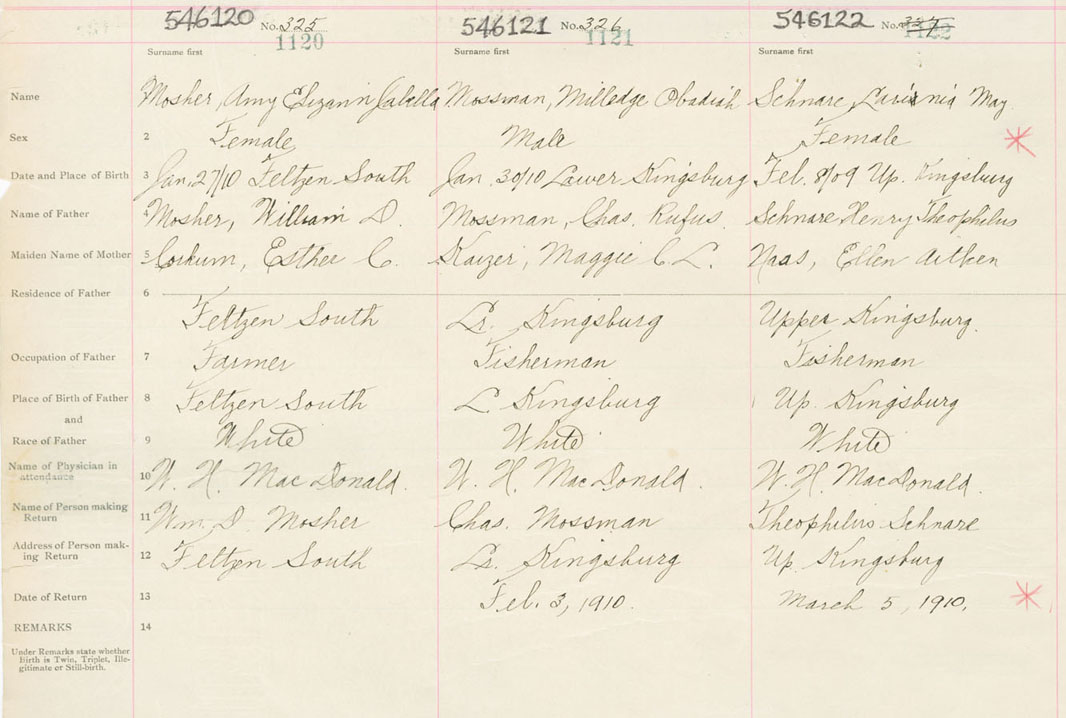 546120 No. 325 546121 No. 326 546122 No. 327
1120 1121 1122
Surname first Surname first Surname first
Name Mosher, Amy Elizann Mossman, Milledge Obadiah Schnare, May
Sex 2 Female Male Female
Date and Place of Birth 3 Jan. 27/10 Feltzen South Jan. 30/10 Lower Kingsburg Feb. 8/09 Up. Kingsburg
Name of Father 4 Mosher, William D. Mossman, Chas. Rufus. Schnare, Henry Theophilus
Maiden Name of Mother 5 Corkum, Esther C. Kaizer, Maggie C. L. Naas, Ellen Aitken
Residence of Father 6
Feltzen South Lr. Kingsburg Upper Kingsburg.
Occupation of Father 7 Farmer Fisherman Fisherman
Place of Birth of Father 8 Feltzen South L Kingsburg Up. Kingsburg
and
Race of Father 9 White White White
Name of Physician in
attendance 10 W. H. MacDonald. W. H. MacDonald. W. H. MacDonald.
Name of Person making
Return 11 Wm. D. Mosher Chas. Mossman Theophilus Schnare
Address of Person mak-
ing Return 12 Feltzen South Lr. Kingsburg Up. Kingsburg
Date of Return 13 Feb. 3, 1910. March 5, 1910.
REMARKS 14
Under Remarks state whether
Birth is Twin, Triplet, Ille-
gitimate or Still-birth.